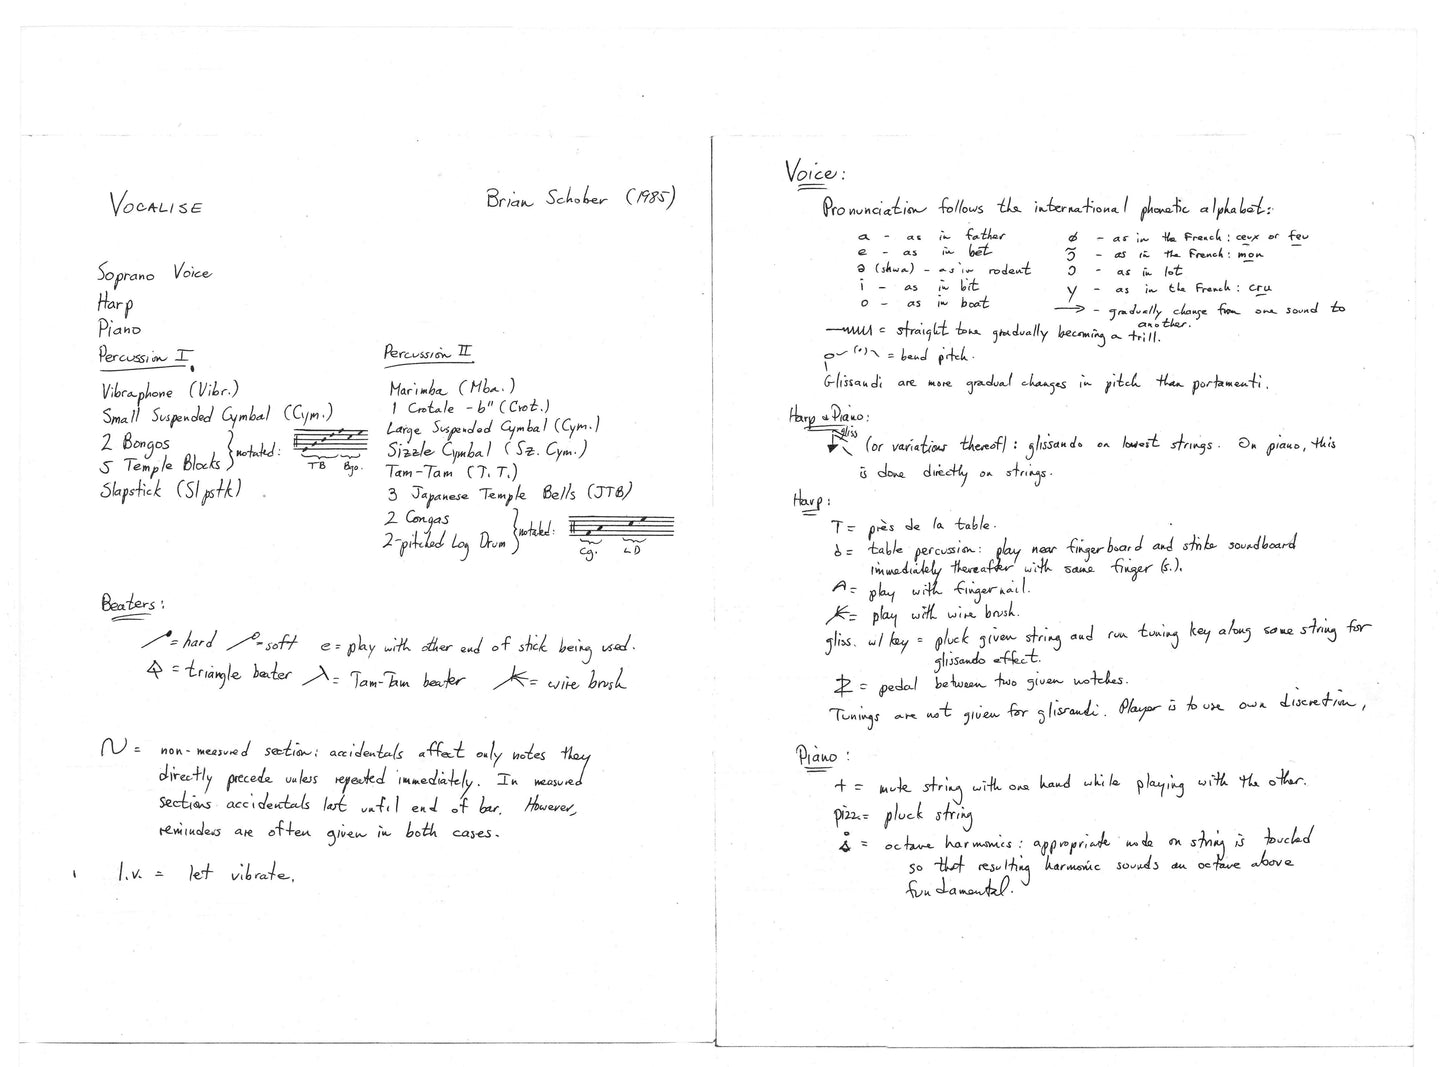 VOCALISE
Brian Schober (1985)
Soprano Voice
Harp
Piano
Percussion I
Vibraphone (Vibr.)
Small Suspended Cymbal (Cym.)
2 Bongos
5 Temple Blocks
notated:
TB Bgo.
Slapstick (Slpstk)
Percussion II
Marimba (Mba.)
1 Crotale - b" (Crot.)
Large Suspended Cymbal (Cym.)
Sizzle Cymbal (Sz. Cym.)
Tam-Tam (T.T.)
3 Japanese Temple Bells (JTB)
2 Congas
2-pitched Log Drum
notated:
Cg. LD
Beaters:
= hard = soft e = play with other end of stick being used.
= triangle beater = Tam-Tam beater = wire brush
= non-measured section: accidentals affect only notes they
directly precede unless repeated immediately. In measured
sections accidentals last until end of bar. However,
reminders are often given in both cases.
l.v. = let vibrate.
Voice:
Pronunciation follows the international phonetic alphabet:
a - as in father
e - as in bet
ə (shwa) - as in rodent
i - as in bit
o - as in boat
ø - as in the French: ceux or feu
ɔ̃ - as in the French: mon
ɔ - as in lot
y - as in the French: cru
→ - gradually change from one sound to
another.
= straight tone gradually becoming a trill.
= bend pitch.
Glissandi are more gradual changes in pitch than portamenti.
Harp & Piano:
gliss (or variations thereof): glissando on lowest strings. On piano, this
is done directly on strings.
Harp:
T = près de la table.
= table percussion: play near fingerboard and strike soundboard
immediately thereafter with same finger (s.).
= play with fingernail.
= play with wire brush.
gliss. w/ key = pluck given string and run tuning key along same string for
glissando effect.
= pedal between two given notches.
Tunings are not given for glissandi. Player is to use own discretion,
Piano:
+ = mute string with one hand while playing with the other.
pizz = pluck string
= octave harmonics: appropriate node on string is touched
so that resulting harmonic sounds an octave above
fundamental.